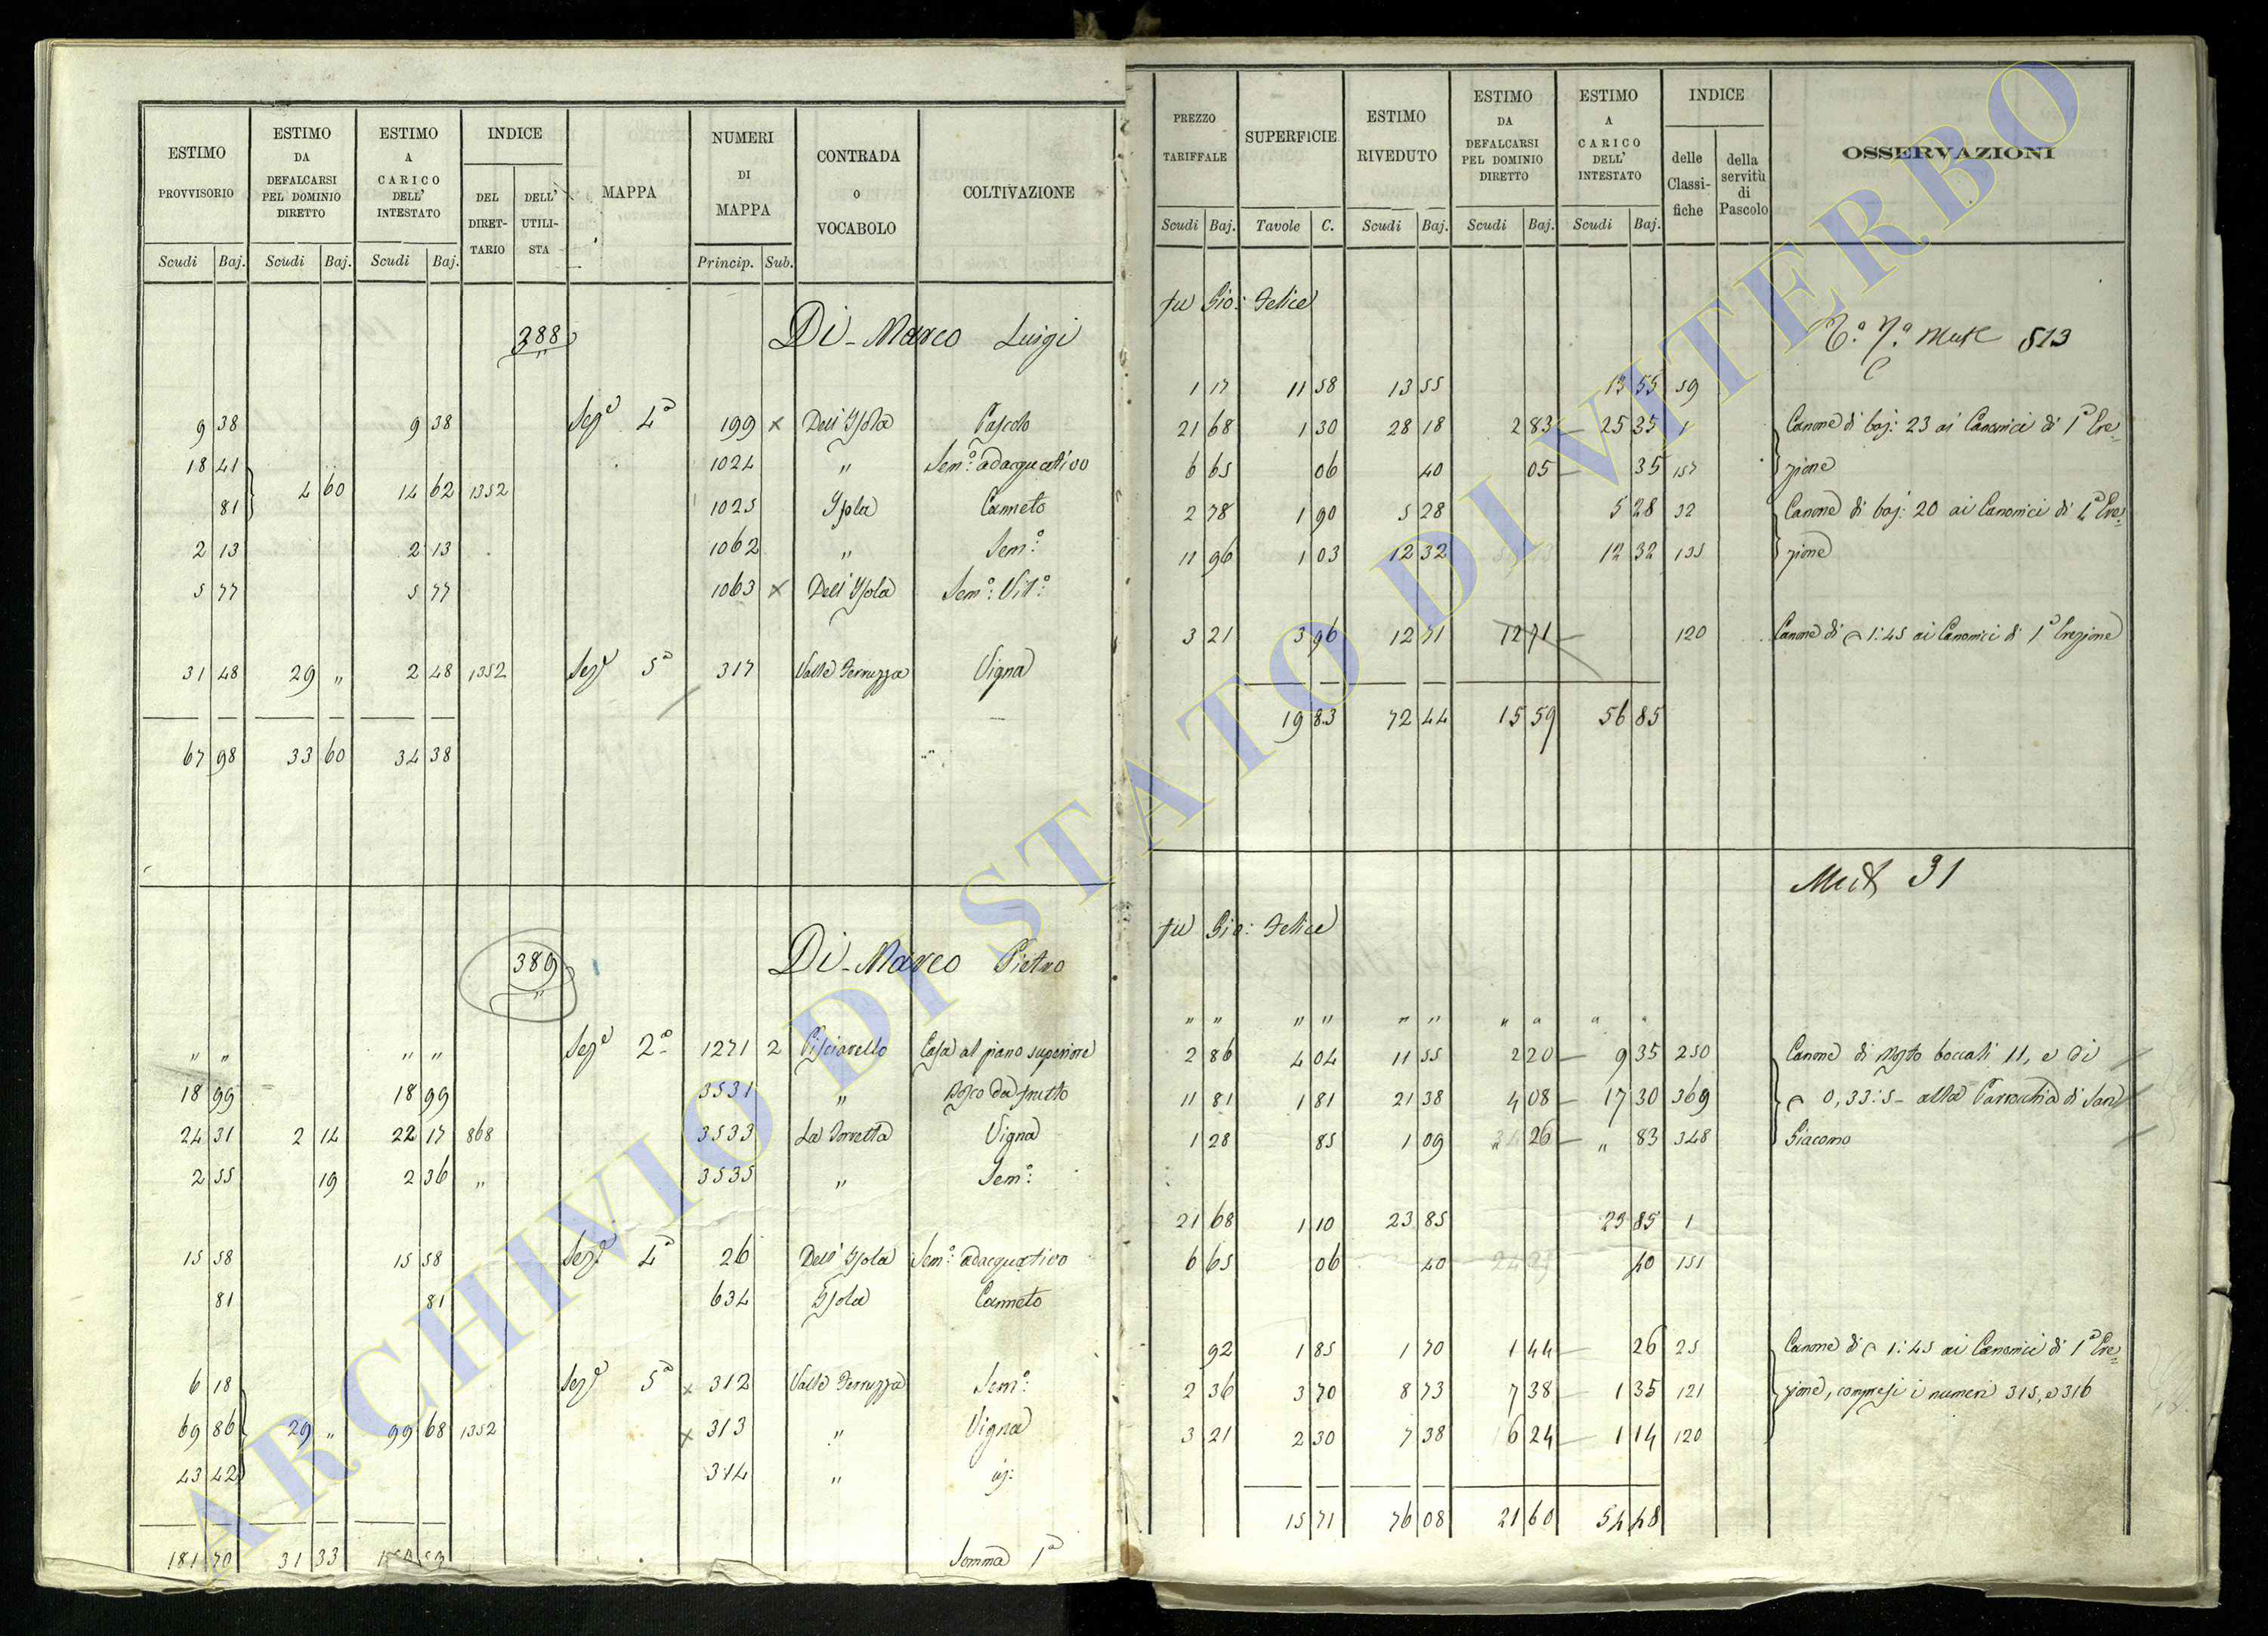 ESTIMO PROVVISORIO
Scudi Baj.
ESTIMO DA DEFALCARSI PEL DOMINIO DIRETTO
Scudi Baj.
ESTIMO A CARICO DELL' INTESTATO
Scudi Baj.
INDICE
DEL DIRET- TARIO
DELL' UTILI- STA
MAPPA
NUMERI DI MAPPA
Princip. Sub.
CONTRADA o VOCABOLO
COLTIVAZIONE
388 Di-Marco Luigi
9 38 9 38 Sez.e 4a 199 x Dell'Isola Pascolo
18 41 1024 " Sem.o adacquativo
4 60 14 62 1352
81 1025 Isola Canneto
2 13 2 13 1062 " Sem.o
5 77 5 77 1063 x Dell'Isola Sem.o Vit.o
31 48 29 " 2 48 1352 Sez.e 5a 317 Valle Ferruzza Vigna
67 98 33 60 34 38
389 Di-Marco Pietro
" " " " Sez.e 2a 1271 2 Pisciarello Casa al piano superiore
18 99 18 99 3531 " Bosco da frutto
24 31 2 14 22 17 868 3533 La Torretta Vigna
2 55 19 2 36 " 3535 " Sem.o
15 58 15 58 Sez.e 4a 26 Dell'Isola Sem.o adacquativo
81 81 634 Isola Canneto
6 18 Sez.e 5a x 312 Valle Ferruzza Sem.o
69 86 29 " 99 68 1352 x 313 " Vigna
43 42 314 " id:
181 70 31 33 Somma 1a
PREZZO TARIFFALE
Scudi Baj.
SUPERFICIE
Tavole C.
ESTIMO RIVEDUTO
Scudi Baj.
ESTIMO DA DEFALCARSI PEL DOMINIO DIRETTO
Scudi Baj.
ESTIMO A CARICO DELL' INTESTATO
Scudi Baj.
INDICE
delle Classi- fiche
della servitù di Pascolo
OSSERVAZIONI
fu Gio: Felice
513
1 17 11 58 13 55 13 55 59
21 68 1 30 28 18 2 83 25 35 1 Canone di baj: 23 ai Canonici di 1a Ere-
6 65 06 40 05 35 157 zione
2 78 1 90 5 28 5 28 32 Canone di baj: 20 ai Canonici di 4a Ere-
11 96 1 03 12 32 12 32 135 zione
3 21 3 96 12 71 12 71 120 Canone di 1:45 ai Canonici di 1a Erezione
19 83 72 44 15 59 56 85
31
fu Gio: Felice
" " " " " " " " " "
2 86 4 04 11 55 2 20 9 35 250 Canone di Mosto boccali 11, e di
11 81 1 81 21 38 4 08 17 30 369 0,33:5 - alla Parrocchia di San
1 28 85 1 09 " 26 " 83 348 Giacomo
21 68 1 10 23 85 23 85 1
6 65 06 40 40 151
92 1 85 1 70 1 44 26 25 Canone di 1:45 ai Canonici di 1a Ere-
2 36 3 70 8 73 7 38 1 35 121 zione, compresi i numeri 315, e 316
3 21 2 30 7 38 6 24 1 14 120
15 71 76 08 21 60 54 48
ARCHIVIO DI STATO DI VITERBO